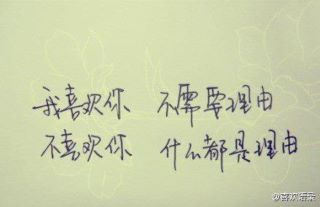 我喜欢你 不需要理由
不喜欢你 什么都是理由
@喜欢语录